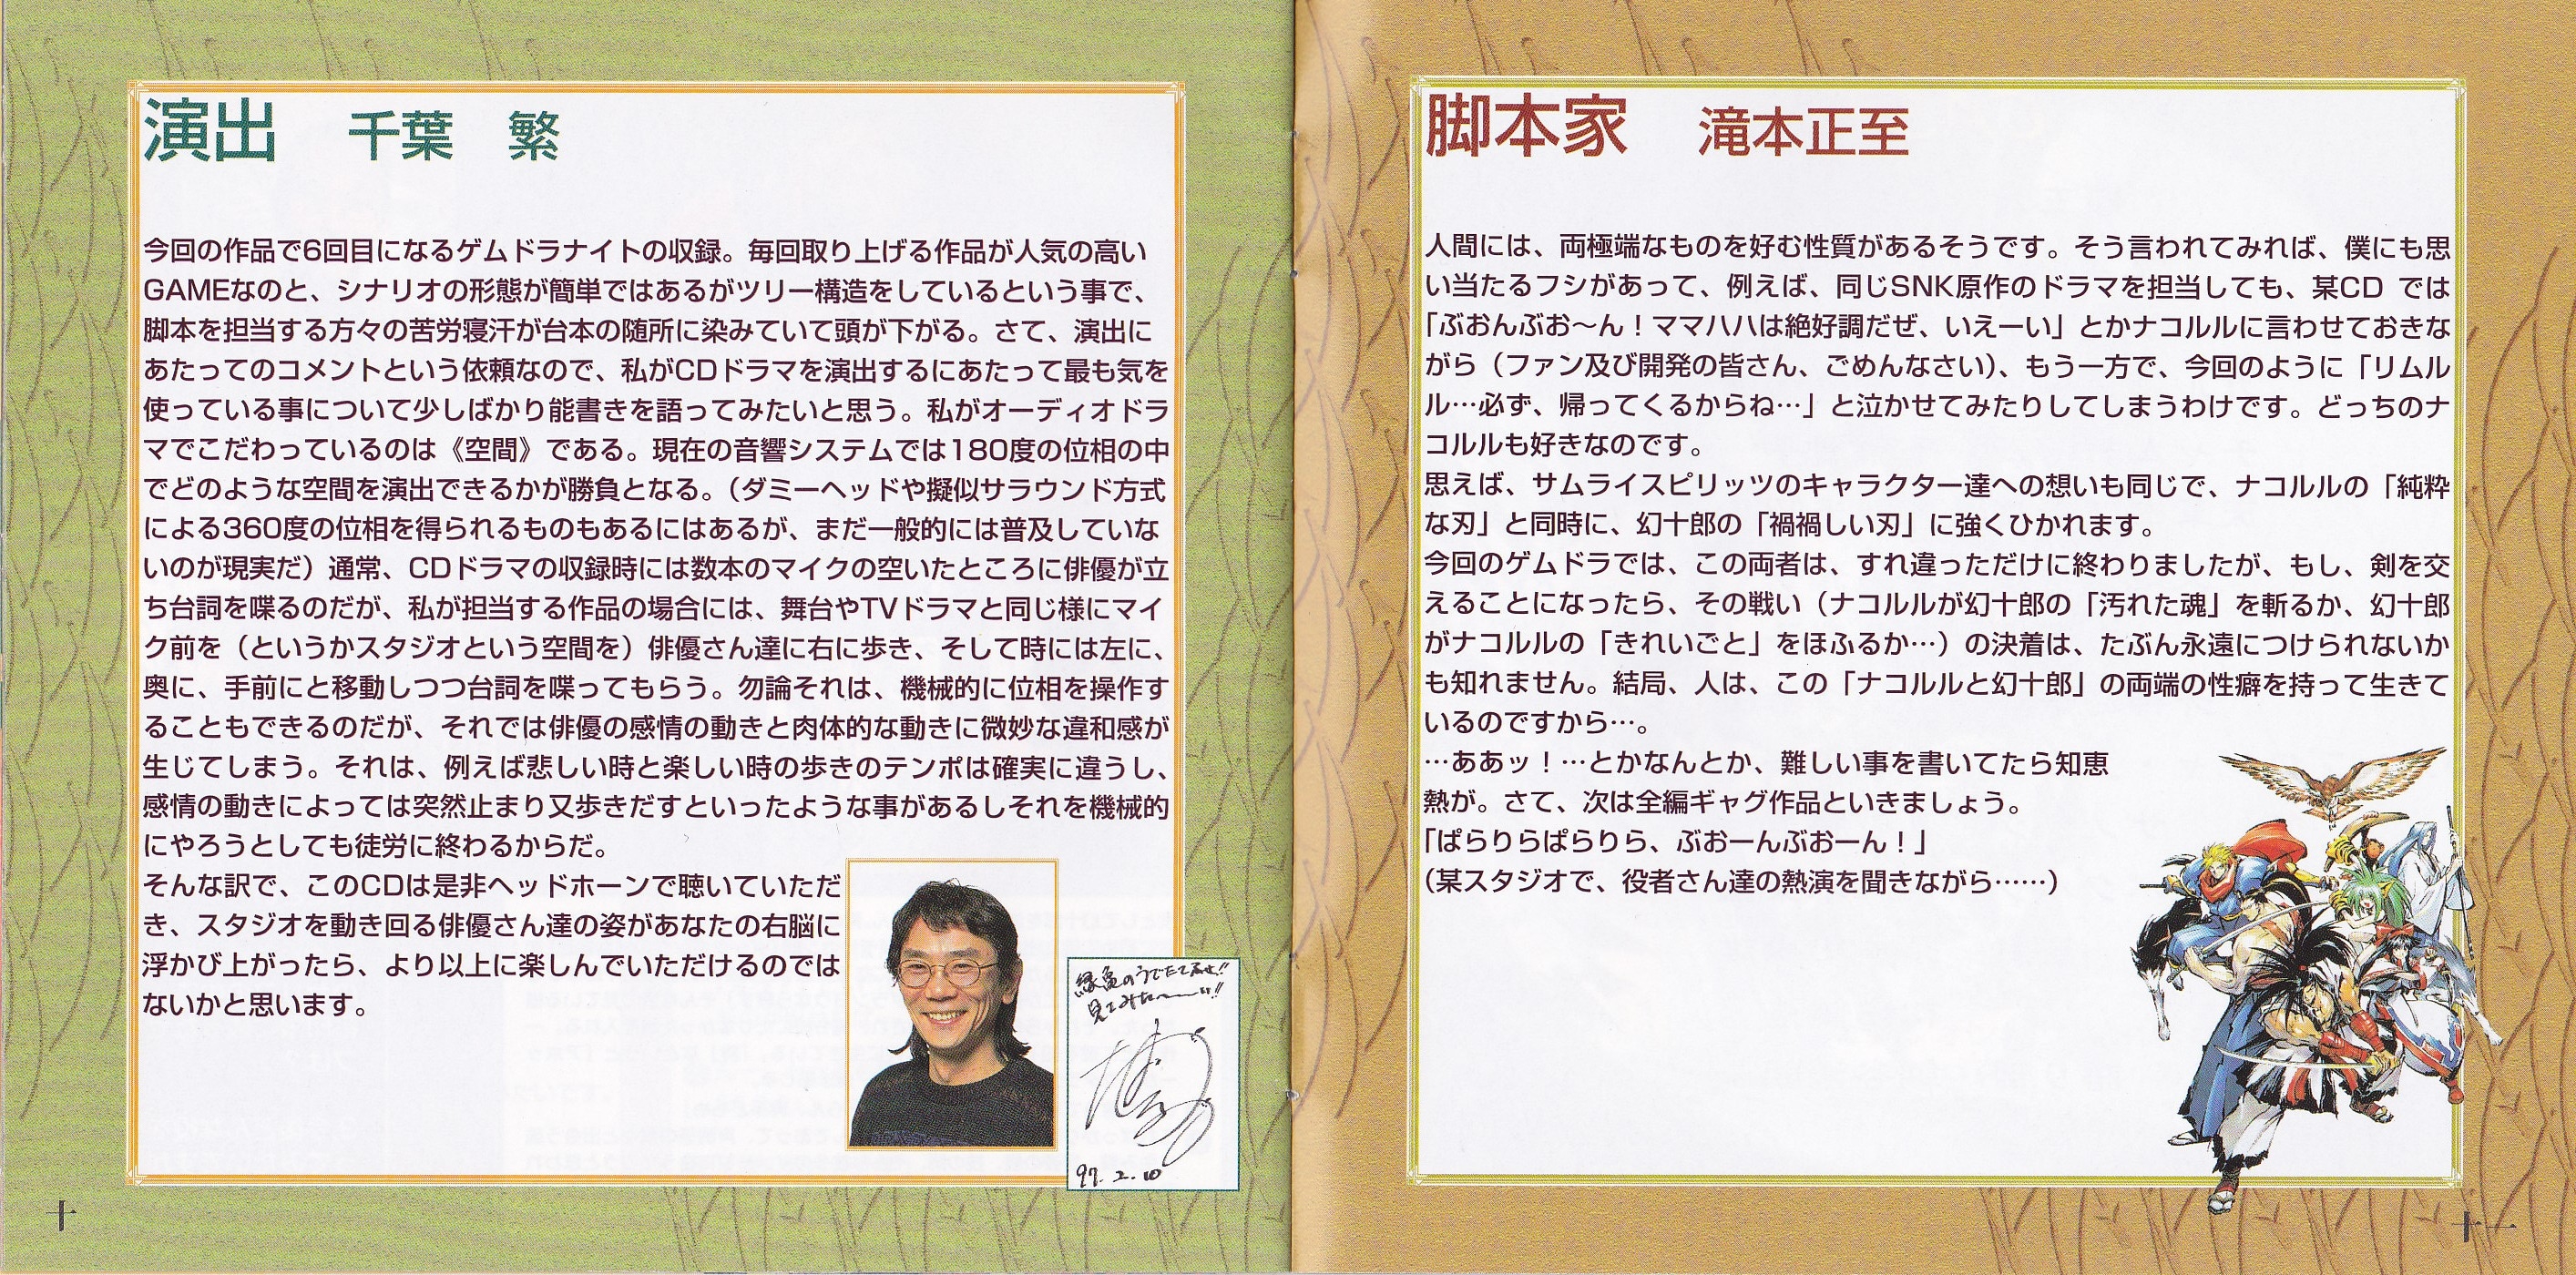 演出　千葉　繁
今回の作品で6回目になるゲムドラナイトの収録。毎回取り上げる作品が人気の高い
GAMEなのと、シナリオの形態が簡単ではあるがツリー構造をしているという事で、
脚本を担当する方々の苦労寝汗が台本の随所に染みていて頭が下がる。さて、演出に
あたってのコメントという依頼なので、私がCDドラマを演出するにあたって最も気を
使っている事について少しばかり能書きを語ってみたいと思う。私がオーディオドラ
マでこだわっているのは《空間》である。現在の音響システムでは180度の位相の中
でどのような空間を演出できるかが勝負となる。（ダミーヘッドや擬似サラウンド方式
による360度の位相を得られるものもあるにはあるが、まだ一般的には普及していな
いのが現実だ）通常、CDドラマの収録時には数本のマイクの空いたところに俳優が立
ち台詞を喋るのだが、私が担当する作品の場合には、舞台やTVドラマと同じ様にマイ
ク前を（というかスタジオという空間を）俳優さん達に右に歩き、そして時には左に、
奥に、手前にと移動しつつ台詞を喋ってもらう。勿論それは、機械的に位相を操作す
ることもできるのだが、それでは俳優の感情の動きと肉体的な動きに微妙な違和感が
生じてしまう。それは、例えば悲しい時と楽しい時の歩きのテンポは確実に違うし、
感情の動きによっては突然止まり又歩きだすといったような事があるしそれを機械的
にやろうとしても徒労に終わるからだ。
そんな訳で、このCDは是非ヘッドホーンで聴いていただ
き、スタジオを動き回る俳優さん達の姿があなたの右脳に
浮かび上がったら、より以上に楽しんでいただけるのでは
ないかと思います。
97.2.10
十
脚本家　滝本正至
人間には、両極端なものを好む性質があるそうです。そう言われてみれば、僕にも思
い当たるフシがあって、例えば、同じSNK原作のドラマを担当しても、某CD では
「ぶおんぶお〜ん！ママハハは絶好調だぜ、いえーい」とかナコルルに言わせておきな
がら（ファン及び開発の皆さん、ごめんなさい）、もう一方で、今回のように「リムル
ル…必ず、帰ってくるからね…」と泣かせてみたりしてしまうわけです。どっちのナ
コルルも好きなのです。
思えば、サムライスピリッツのキャラクター達への想いも同じで、ナコルルの「純粋
な刃」と同時に、幻十郎の「禍禍しい刃」に強くひかれます。
今回のゲムドラでは、この両者は、すれ違っただけに終わりましたが、もし、剣を交
えることになったら、その戦い（ナコルルが幻十郎の「汚れた魂」を斬るか、幻十郎
がナコルルの「きれいごと」をほふるか…）の決着は、たぶん永遠につけられないか
も知れません。結局、人は、この「ナコルルと幻十郎」の両端の性癖を持って生きて
いるのですから…。
…ああッ！…とかなんとか、難しい事を書いてたら知恵
熱が。さて、次は全編ギャグ作品といきましょう。
「ぱらりらぱらりら、ぶおーんぶおーん！」
（某スタジオで、役者さん達の熱演を聞きながら……）
十一